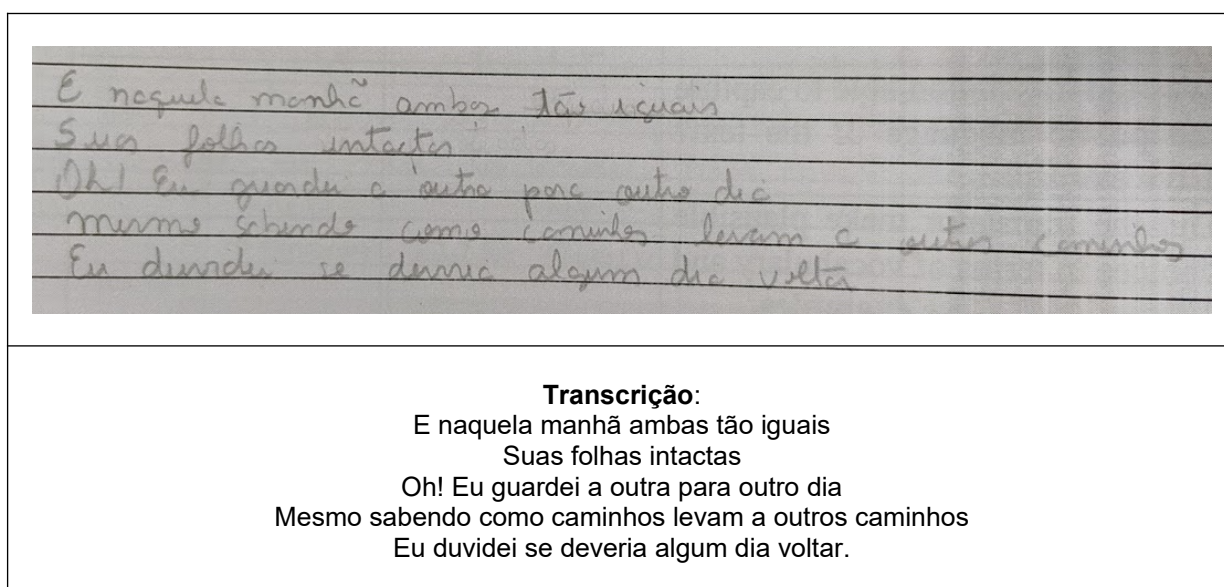 E naquela manhã ambas tão iguais
Suas folhas intactas
Oh! Eu guardei a outra para outro dia
mesmo sabendo como caminhos levam a outros caminhos
Eu duvidei se deveria algum dia voltar
Transcrição:
E naquela manhã ambas tão iguais
Suas folhas intactas
Oh! Eu guardei a outra para outro dia
Mesmo sabendo como caminhos levam a outros caminhos
Eu duvidei se deveria algum dia voltar.